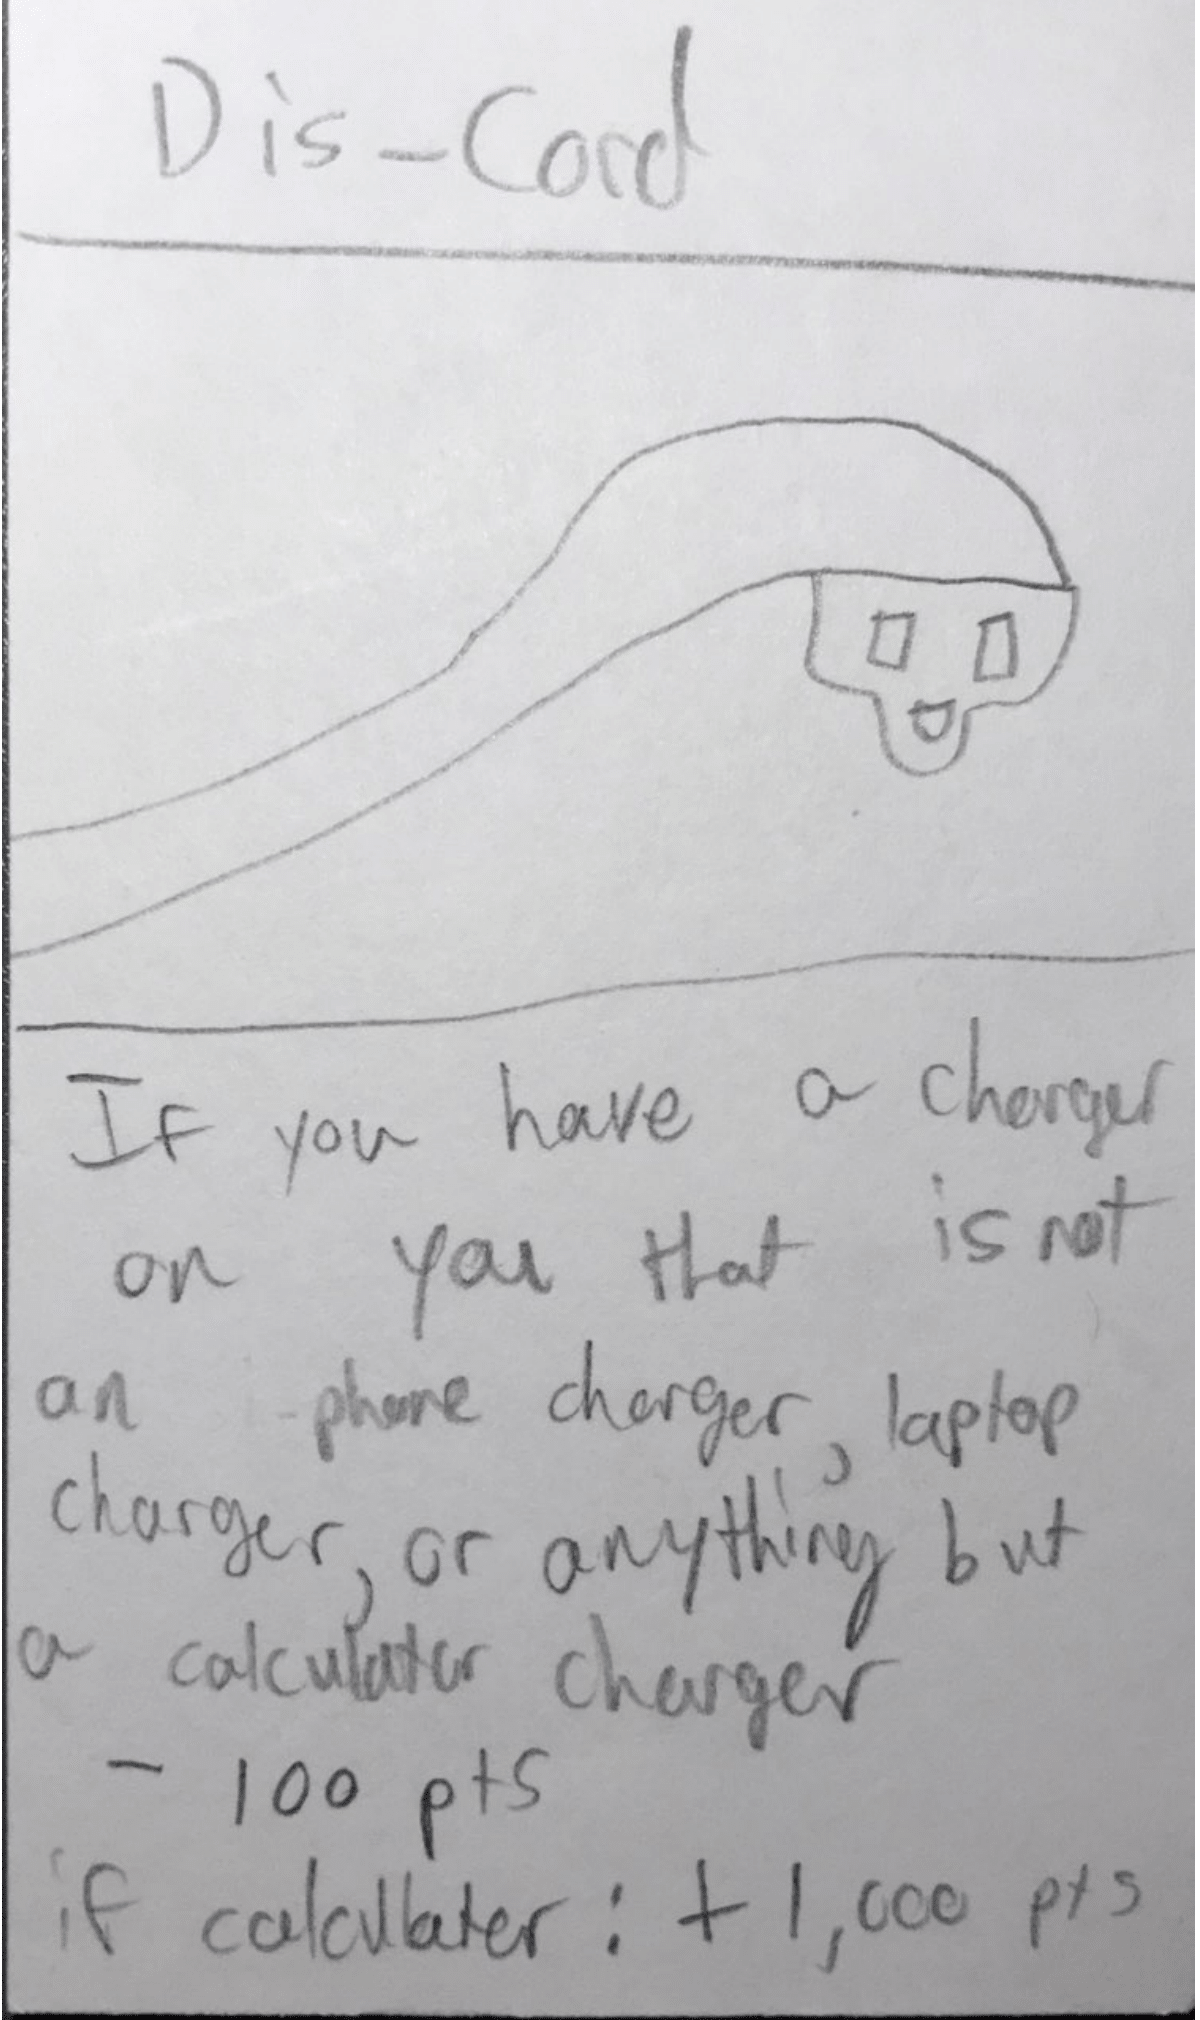 Dis-Cord
If you have a charger
on you that is not
an i-phone charger, laptop
charger, or anything but
a calculater charger
- 100 pts
if calculater: +1,000 pts